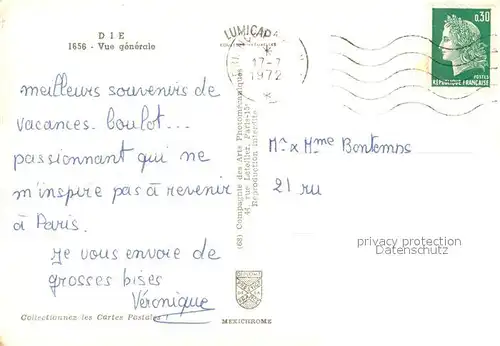 DIE
1656 - Vue générale
meilleurs souvenirs de
vacances. boulot...
passionnant qui ne
m'inspire pas à revenir
à Paris.
Je vous envoie de
grosses bises
Véronique
Collectionnez les Cartes Postales !
(68) Compagnie des Arts Photomécaniques
44, rue Letellier, Paris-15e
Reproduction interdite
LUMICAP
MEXICHROME
17-7
1972
0,30
POSTES
REPUBLIQUE FRANÇAISE
Mr x Mme Bontemps
21 ru
privacy protection
Datenschutz